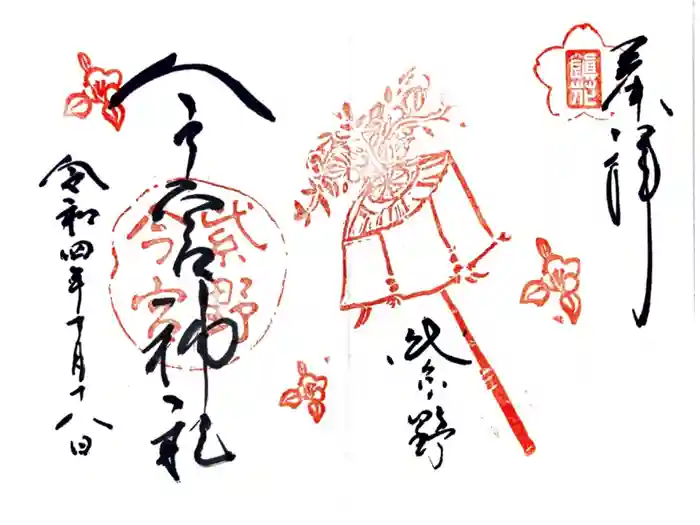 奉拝
鎭花
紫野
今宮神社
紫野
今宮
令和四年十月十八日